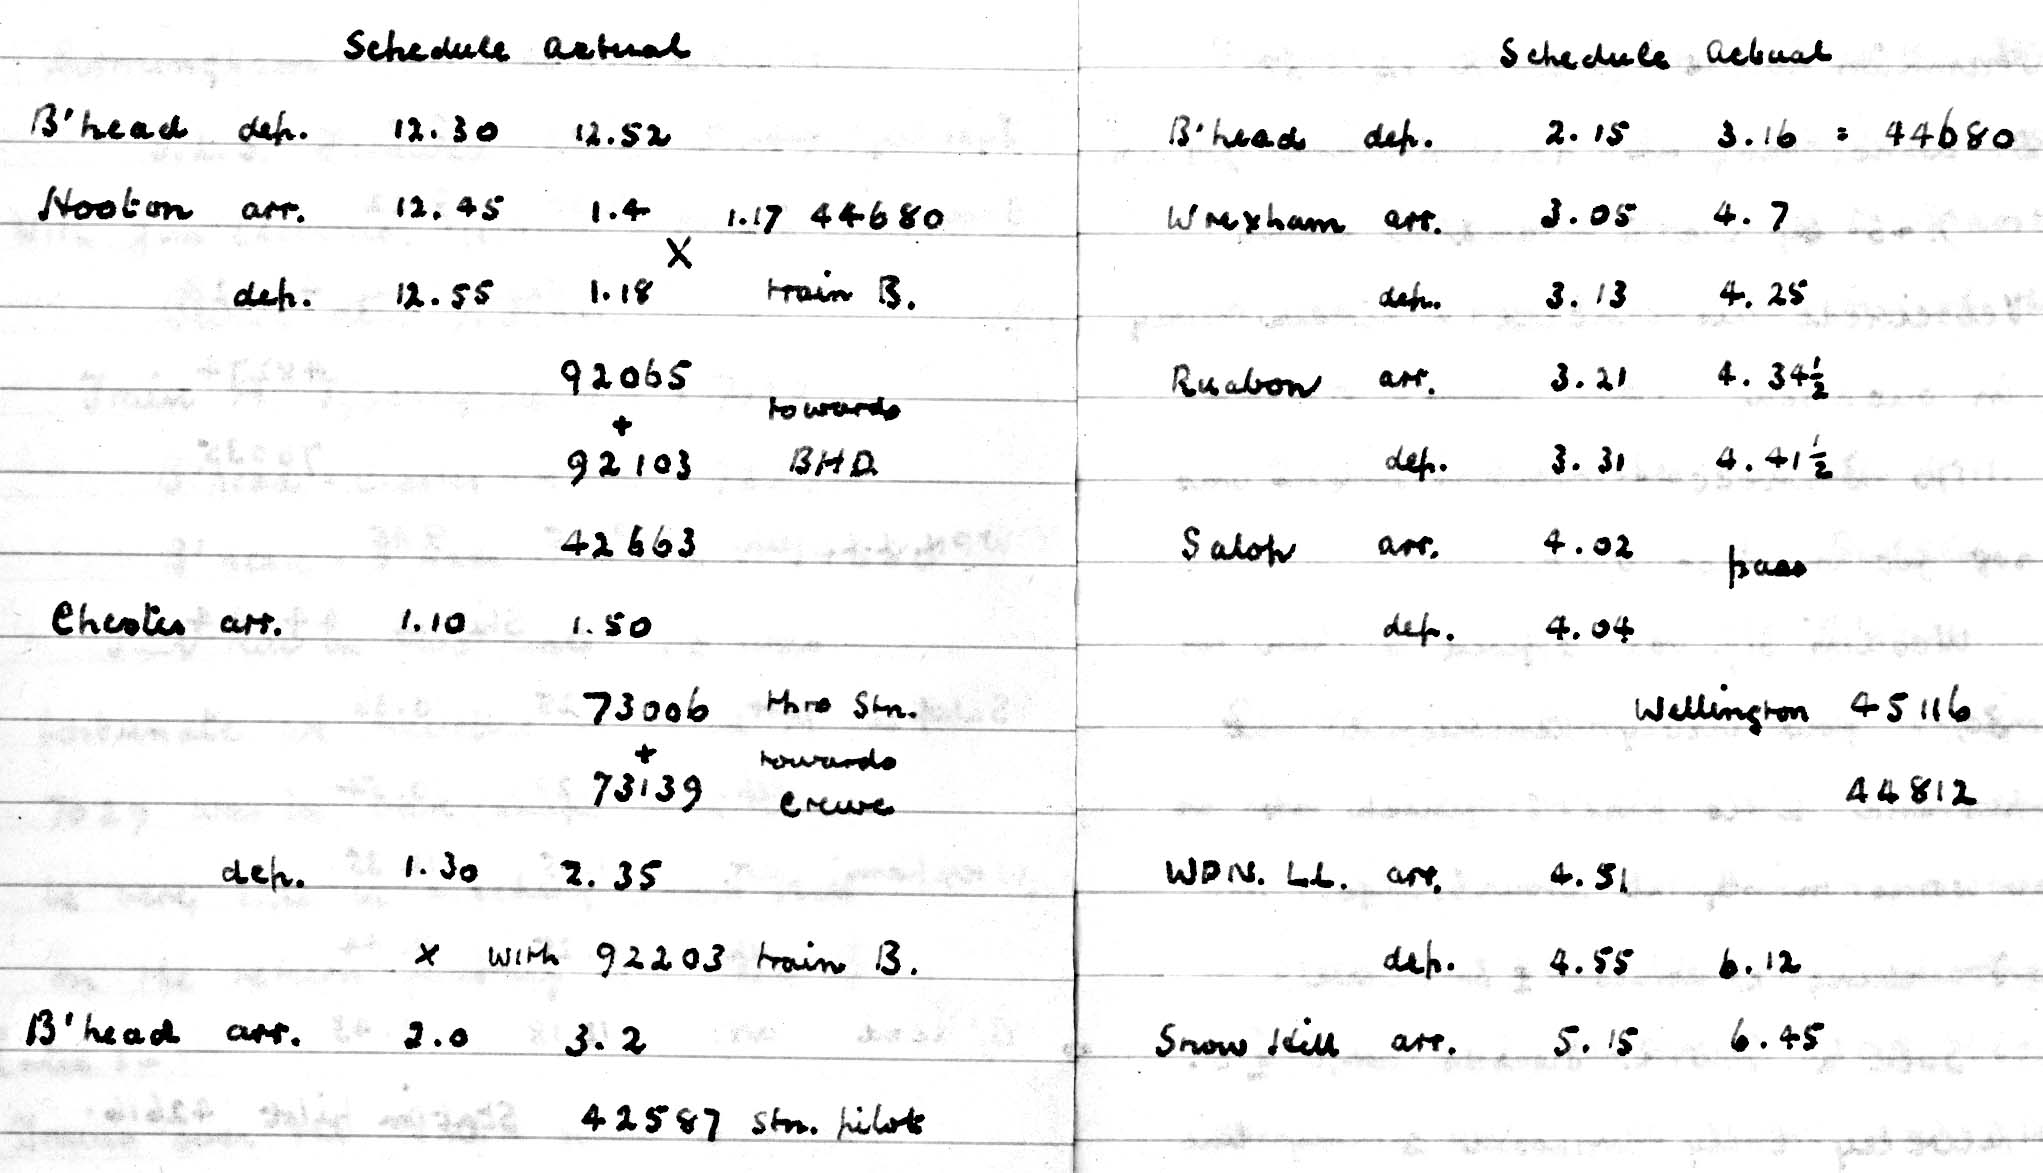 Schedule Actual
B'head dep. 12.30 12.52
Hooton arr. 12.45 1.4 1.17 44680
X
dep. 12.55 1.18 train B.
92065
+ towards
92103 BHD.
42663
Chester arr. 1.10 1.50
73006 thro Stn.
+ towards
73139 Crewe
dep. 1.30 2.35
x with 92203 train B.
B'head arr. 2.0 3.2
42587 Stn. pilot
Schedule Actual
B'head dep. 2.15 3.16 = 44680
Wrexham arr. 3.05 4.7
dep. 3.13 4.25
Ruabon arr. 3.21 4.34½
dep. 3.31 4.41½
Salop arr. 4.02 pass
dep. 4.04
Wellington 45116
44812
WPN. LL. arr. 4.51
dep. 4.55 6.12
Snow Hill arr. 5.15 6.45